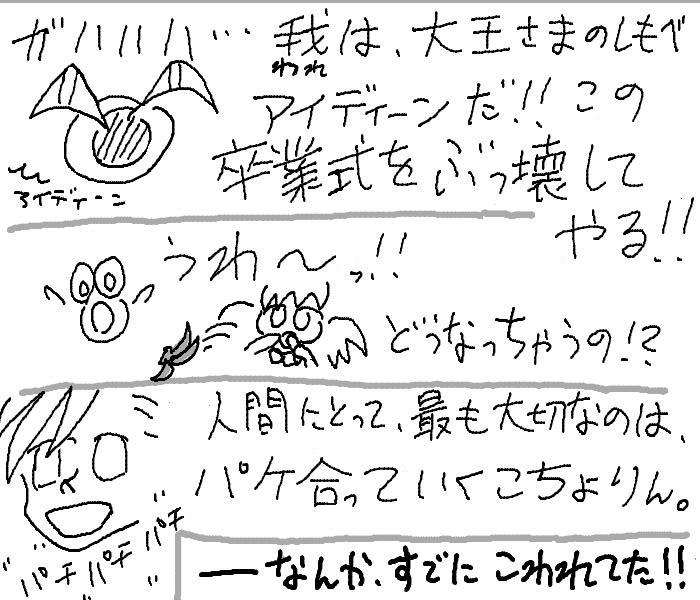 ガハハハ… 我は、大王さまのしもべ
われ
アイディーンだ!! この
卒業式をぶっ壊して
やる!!
アイディーン
うわ〜っ!!
どうなっちゃうの!?
人間にとって、最も大切なのは、
パケ合っていくこちょりん。
パチパチパチ
―なんか、すでに こわれてた!!